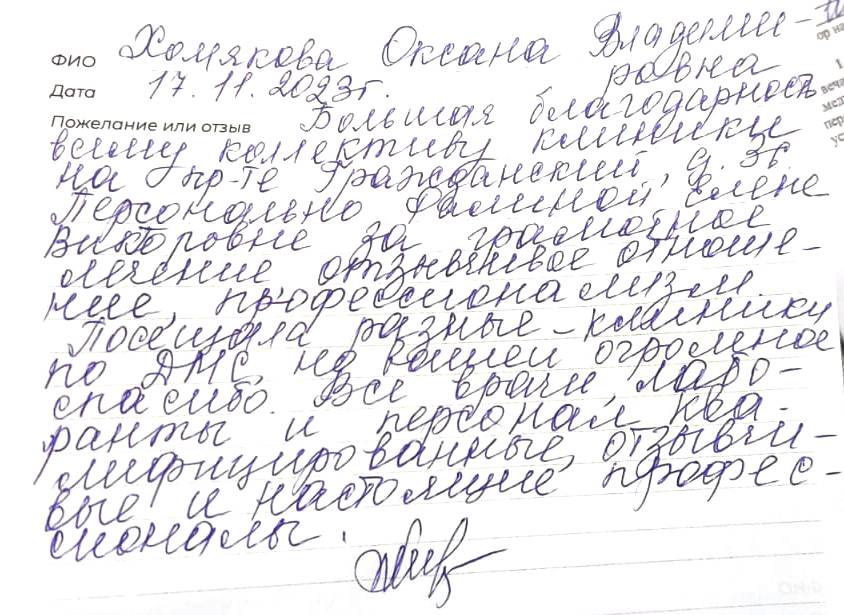 ФИО Хомякова Оксана Владими-
ровна
Дата 17.11.2023г.
Пожелание или отзыв Большая благодарность
всему коллективу клиники
на пр-те Гражданский, д.
Персонально Фалиной Елене
Викторовне за грамотное
лечение отзывчивое отноше-
ние, профессионализм.
Посещала разные - клиники
по ДМС, но вашей огромное
спасибо. Все врачи, лабо-
ранты и персонал ква-
лифицированные, отзывчи-
вые и настоящие профес-
сионалы.
ор на
1.
веча
мед
пер
ус